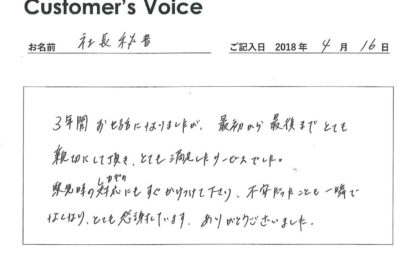 Customer's Voice
お名前 社長秘書
ご記入日 2018年 4月 16日
3年間お世話になりましたが、最初から最後までとても
親切にして頂き、とても満足したサービスでした。
緊急時の対応にもすぐかけつけて下さり、不安だったことも一瞬で
なくなり、とても感謝しています。ありがとうございました。